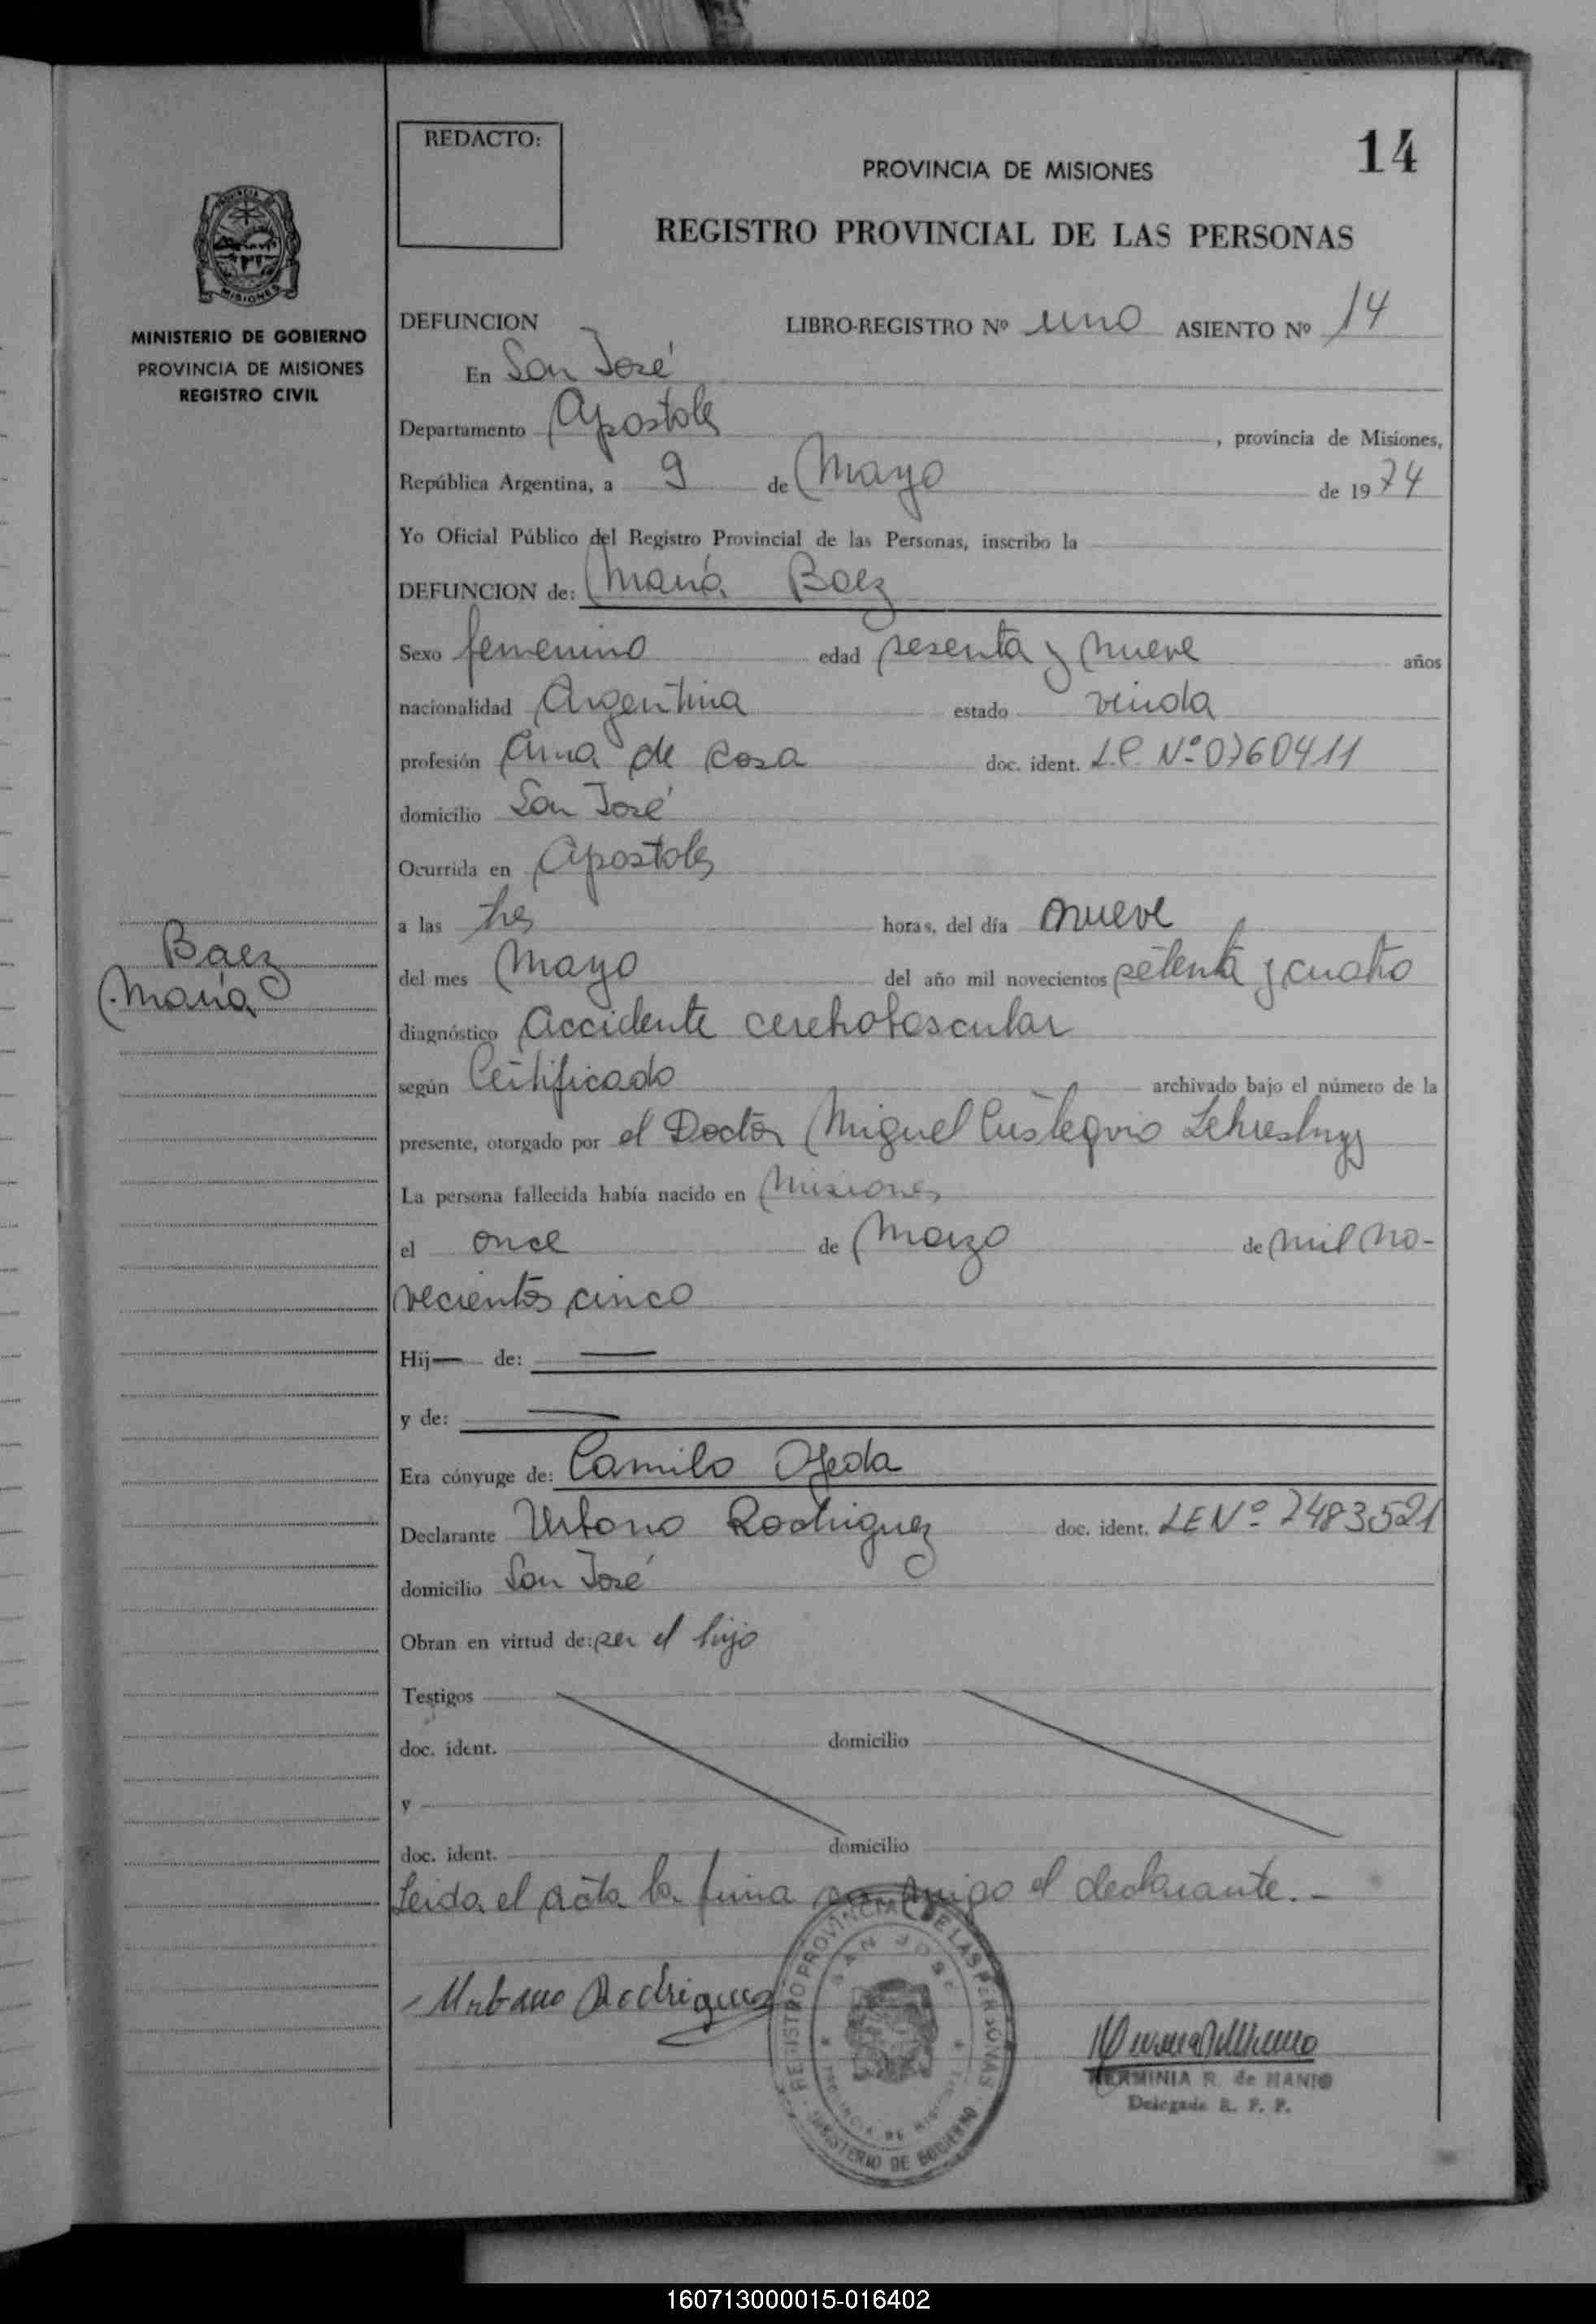 REDACTO:
14
PROVINCIA DE MISIONES
REGISTRO PROVINCIAL DE LAS PERSONAS
MISIONES
MINISTERIO DE GOBIERNO
PROVINCIA DE MISIONES
REGISTRO CIVIL
DEFUNCION LIBRO-REGISTRO Nº uno ASIENTO Nº 14
En San José
Departamento Apostoles, provincia de Misiones,
República Argentina, a 9 de Mayo de 1974
Yo Oficial Público del Registro Provincial de las Personas, inscribo la
DEFUNCION de: María Baez
Sexo femenino edad sesenta y nueve años
nacionalidad Argentina estado viuda
profesión Ama de casa doc. ident. L.C. Nº 0760411
domicilio San José
Ocurrida en Apostoles
a las tres horas, del día nueve
Baez
María
del mes Mayo del año mil novecientos setenta y cuatro
diagnóstico Accidente cerebrobascular
según Certificado archivado bajo el número de la
presente, otorgado por el Doctor Miguel Eustaquio
La persona fallecida había nacido en Misiones
el once de Marzo de mil no-
vecientos cinco
Hij— de: —
y de: —
Era cónyuge de: Camilo Ojeda
Declarante Urbano Rodriguez doc. ident. LE Nº 7483521
domicilio San José
Obran en virtud de: ser el hijo
Testigos
doc. ident. domicilio
y
doc. ident. domicilio
Leida el acta la firma conmigo el declarante.-
Urbano Rodriguez
REGISTRO PROVINCIAL DE LAS PERSONAS
SAN JOSE
PROVINCIA DE MISIONES
MINISTERIO DE GOBIERNO
HERMINIA R. de NANIO
Delegada R. P. P.
160713000015-016402